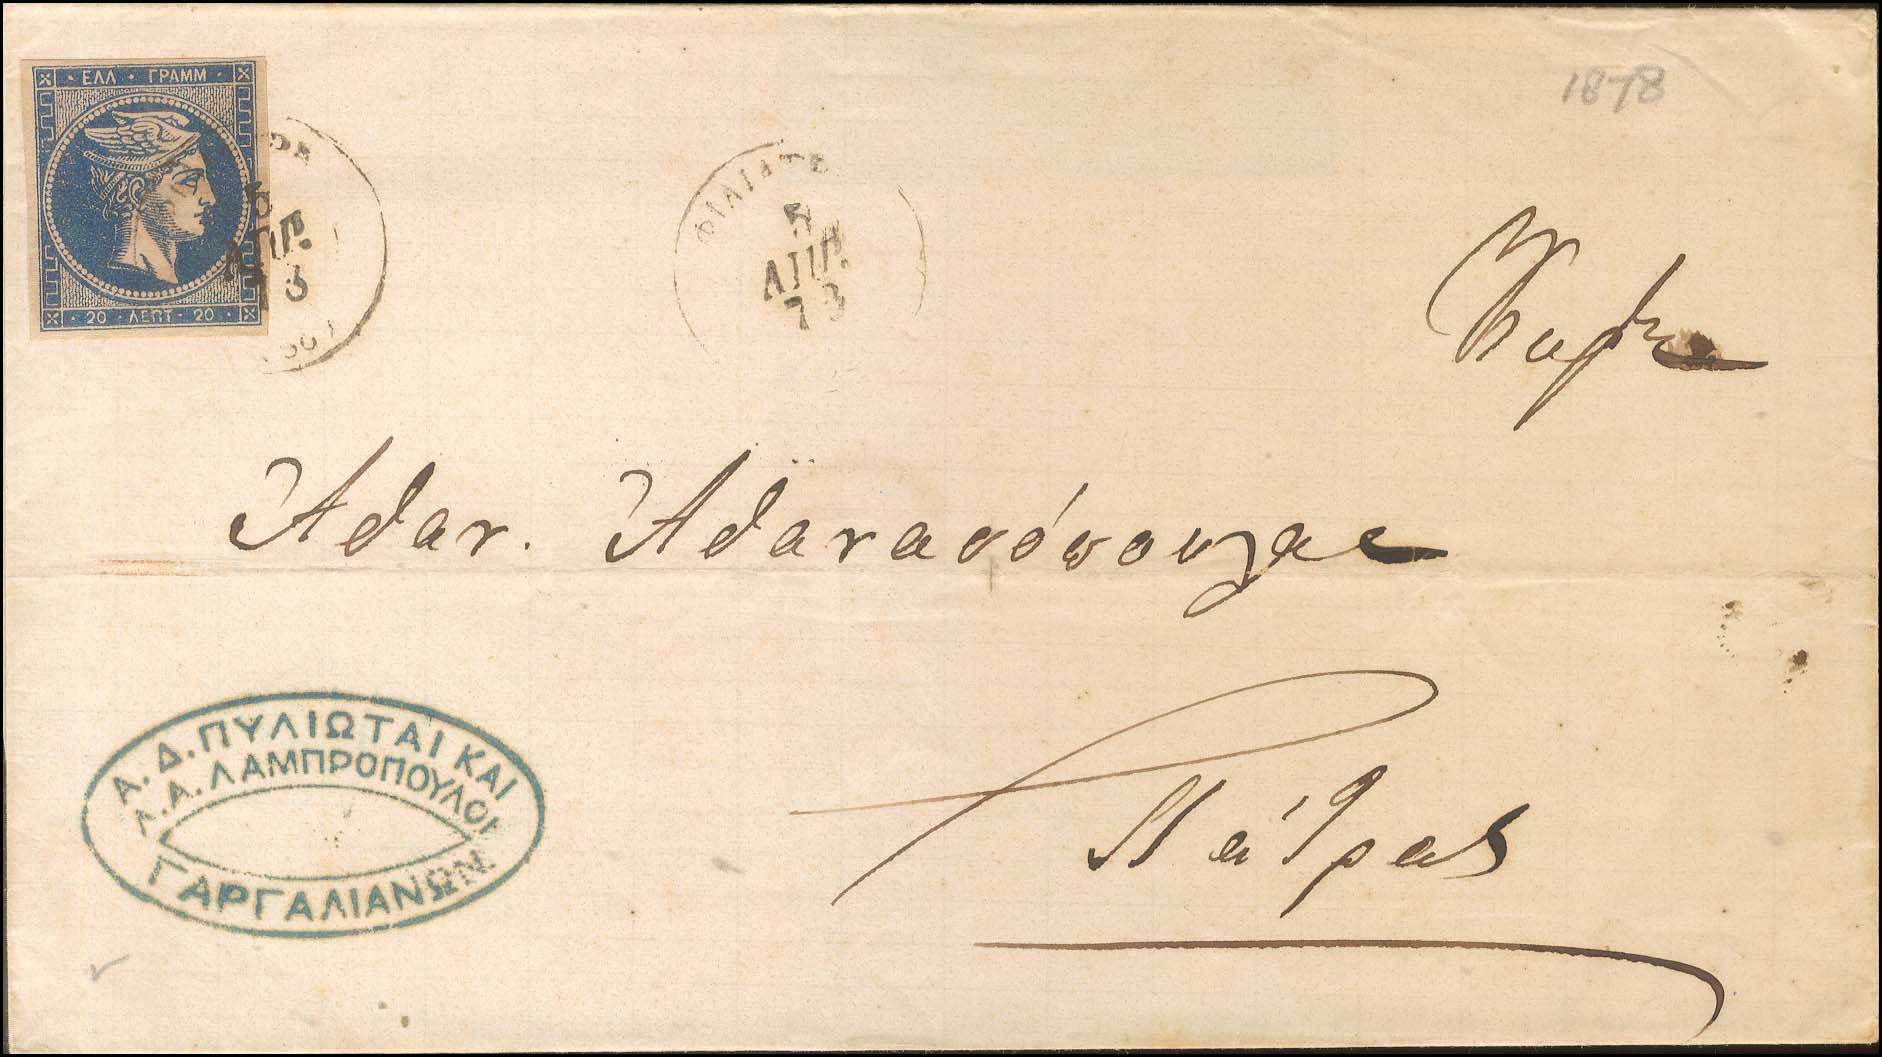 · ΕΛΛ · ΓΡΑΜΜ ·
· 20 · ΛΕΠΤ · 20 ·
5
ΑΠΡ.
ΦΙΛΙΑΤΡ
5
ΑΠΡ.
1878
Ἀθαν. Ἀθανασόπουλον
Πάτρας
Α. Δ. ΠΥΛΙΩΤΑΙ ΚΑΙ
Λ. Α. ΛΑΜΠΡΟΠΟΥΛΟΙ
ΓΑΡΓΑΛΙΑΝΩΝ